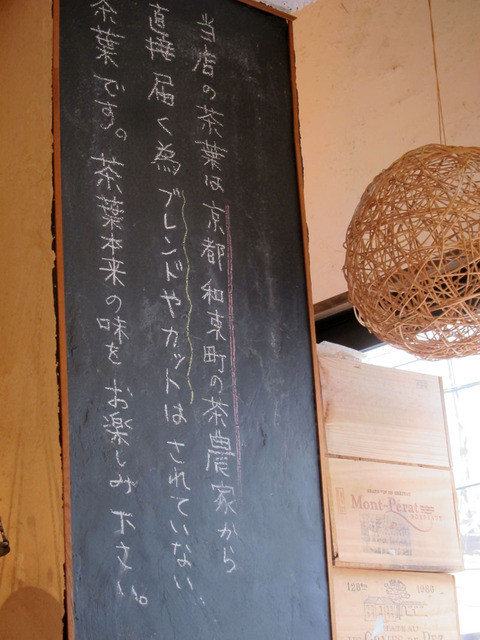 当店の茶葉は京都 和束町の茶農家から
直接届く為ブレンドやカットはされていない、
茶葉です。茶葉本来の味をお楽しみ下さい。
Mont-Pérat
CHATEAU